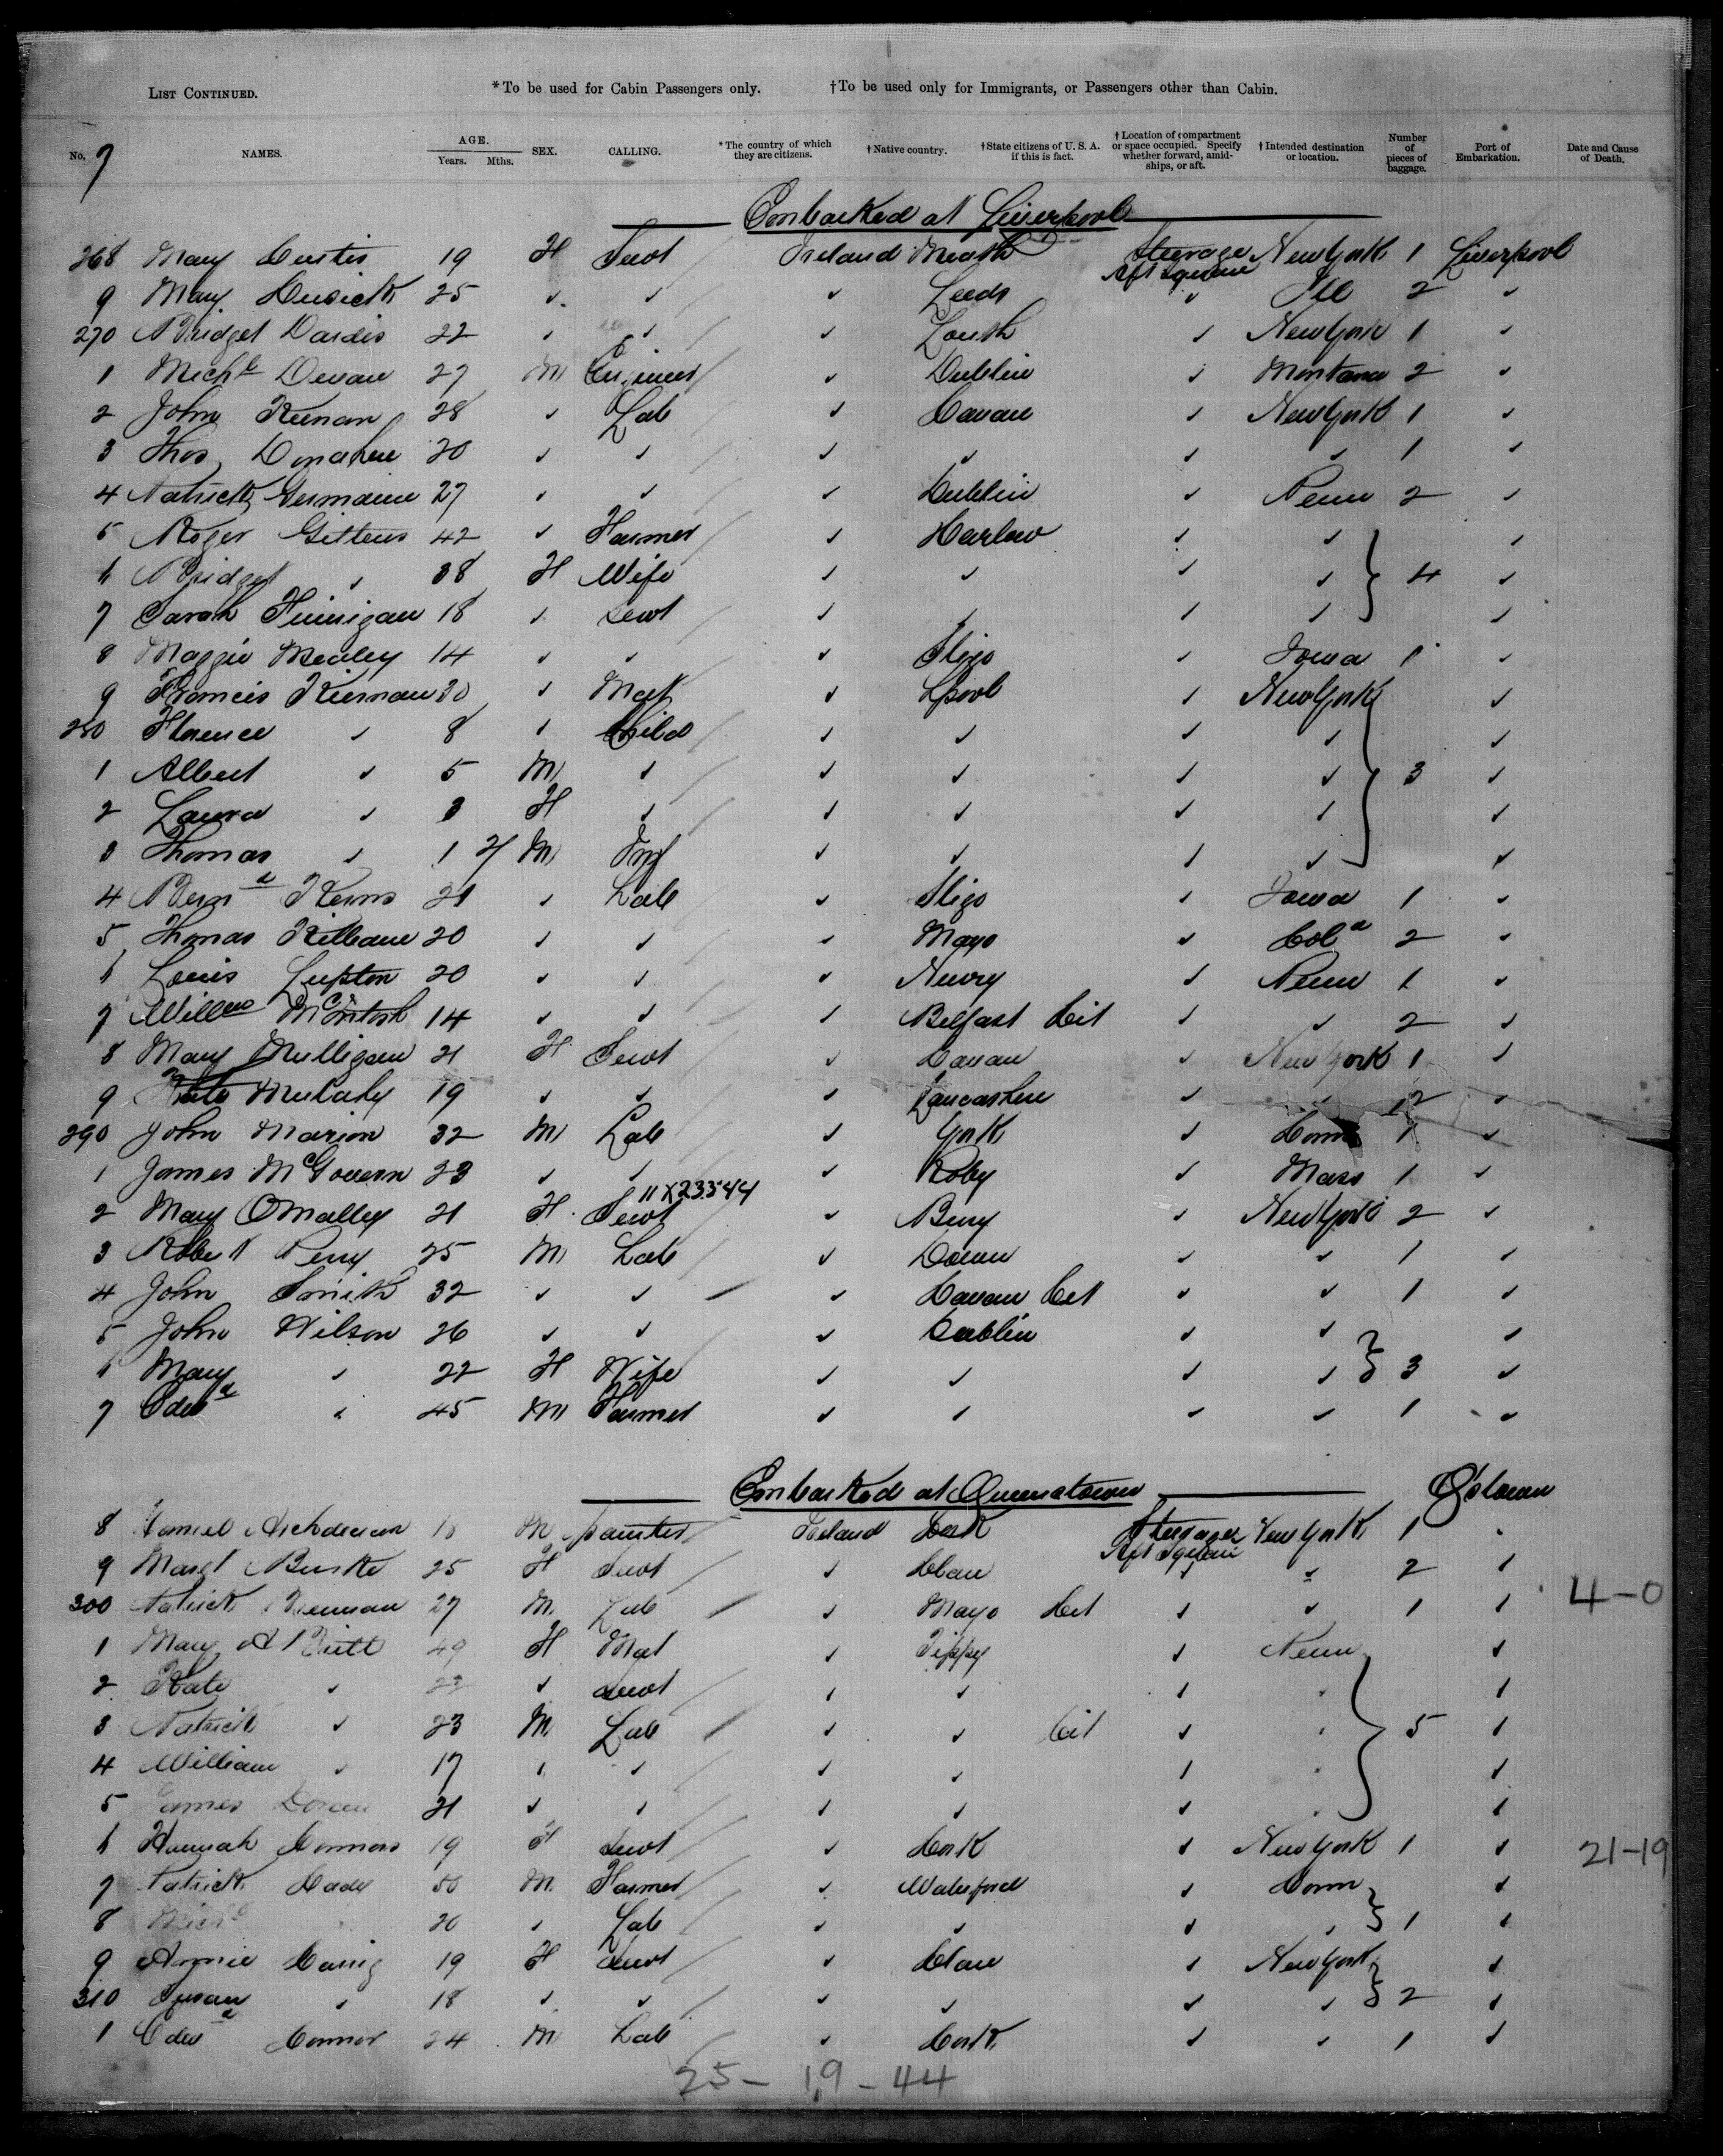 LIST CONTINUED. *To be used for Cabin Passengers only. †To be used only for Immigrants, or Passengers other than Cabin.
No. 7 NAMES. AGE. Years. Mths. SEX. CALLING. *The country of which they are citizens. †Native country. †State citizens of U. S. A. if this is fact. †Location of compartment or space occupied. Specify whether forward, amidships, or aft. †Intended destination or location. Number of pieces of baggage. Port of Embarkation. Date and Cause of Death.
Embarked at Liverpool
268 Mary Curtis 19 F Servt Ireland Meath Steerage Aft Square New York 1 Liverpool
9 Mary Cusick 25 ✓ ✓ ✓ Leeds ✓ Ill 2 ✓
270 Bridget Dardis 22 ✓ ✓ ✓ Louth ✓ New York 1 ✓
1 Michl Devan 27 M Engineer ✓ Dublin ✓ Montana 2 ✓
2 John Keenan 28 ✓ Lab ✓ Cavan ✓ New York 1 ✓
3 Thos Donahue 20 ✓ ✓ ✓ ✓ ✓ ✓ 1 ✓
4 Patrick Germaine 27 ✓ ✓ ✓ Dublin ✓ Penn 2 ✓
5 Roger Gittens 42 ✓ Farmer ✓ Carlow ✓ ✓ ✓
6 Bridget ✓ 38 F Wife ✓ ✓ ✓ ✓ 4 ✓
7 Sarah Finnigan 18 ✓ Servt ✓ ✓ ✓ ✓ ✓
8 Maggie Mealey 14 ✓ ✓ ✓ Sligo ✓ Iowa 1 ✓
9 Francis Kiernan 30 ✓ Mat ✓ Lpool ✓ New York ✓
280 Florence ✓ 8 ✓ Child ✓ ✓ ✓ ✓ ✓
1 Albert ✓ 5 M ✓ ✓ ✓ ✓ ✓ 3 ✓
2 Laura ✓ 3 F ✓ ✓ ✓ ✓ ✓ ✓
3 Thomas ✓ 1 M Inf ✓ ✓ ✓ ✓ ✓
4 Bernd Kerns 21 ✓ Lab ✓ Sligo ✓ Iowa 1 ✓
5 Thomas Killeane 20 ✓ ✓ ✓ Mayo ✓ Cola 2 ✓
6 Louis Lupton 20 ✓ ✓ ✓ Newry ✓ Penn 1 ✓
7 Willm McIntosh 14 ✓ ✓ ✓ Belfast Cit ✓ ✓ 2 ✓
8 Mary Mulligan 21 F Servt ✓ Cavan ✓ New York 1 ✓
9 Kate Mulcahy 19 ✓ ✓ ✓ Lancashire ✓ ✓ 2 ✓
290 John Marion 32 M Lab ✓ York ✓ Conn 1 ✓
1 James McGovern 23 ✓ ✓ ✓ Roby ✓ Mass 1 ✓
11X23544
2 Mary OMalley 21 F Servt ✓ Bury ✓ New York 2 ✓
3 Robert Perry 25 M Lab ✓ Down ✓ ✓ 1 ✓
4 John Smith 32 ✓ ✓ ✓ Cavan Cit ✓ ✓ 1 ✓
5 John Wilson 26 ✓ ✓ ✓ Dublin ✓ ✓ ✓
6 Mary ✓ 22 F Wife ✓ ✓ ✓ ✓ 3 ✓
7 Edwd ✓ 45 M Farmer ✓ ✓ ✓ ✓ 1 ✓
Embarked at Queenstown Q'stown
8 Daniel 18 M Painter Ireland Cork Steerage Aft Square New York 1
9 Margt Burke 25 F Servt ✓ Clare ✓ ✓ 2 ✓
300 Patrick Brennan 27 M Lab ✓ Mayo Cit ✓ ✓ 1 ✓ 4-0
1 Mary A Britt 49 F Mat ✓ Tippy ✓ Penn ✓
2 Kate ✓ 22 ✓ Servt ✓ ✓ ✓ ✓ ✓
3 Patrick ✓ 23 M Lab ✓ ✓ Cit ✓ ✓ 5 ✓
4 William ✓ 17 ✓ ✓ ✓ ✓ ✓ ✓ ✓
5 James Doran 21 ✓ ✓ ✓ ✓ ✓ ✓ ✓
6 Hannah Connors 19 F Servt ✓ Cork ✓ New York 1 ✓ 21-19
7 Patrick Cady 50 M Farmer ✓ Waterford ✓ Conn ✓
8 Michl 20 ✓ Lab ✓ ✓ ✓ ✓ 1 ✓
9 Annie Canig 19 F Servt ✓ Clare ✓ New York ✓
310 Susan ✓ 18 ✓ ✓ ✓ ✓ ✓ ✓ 2 ✓
1 Edwd Connor 24 M Lab ✓ Cork ✓ ✓ 1 ✓
25-19-44